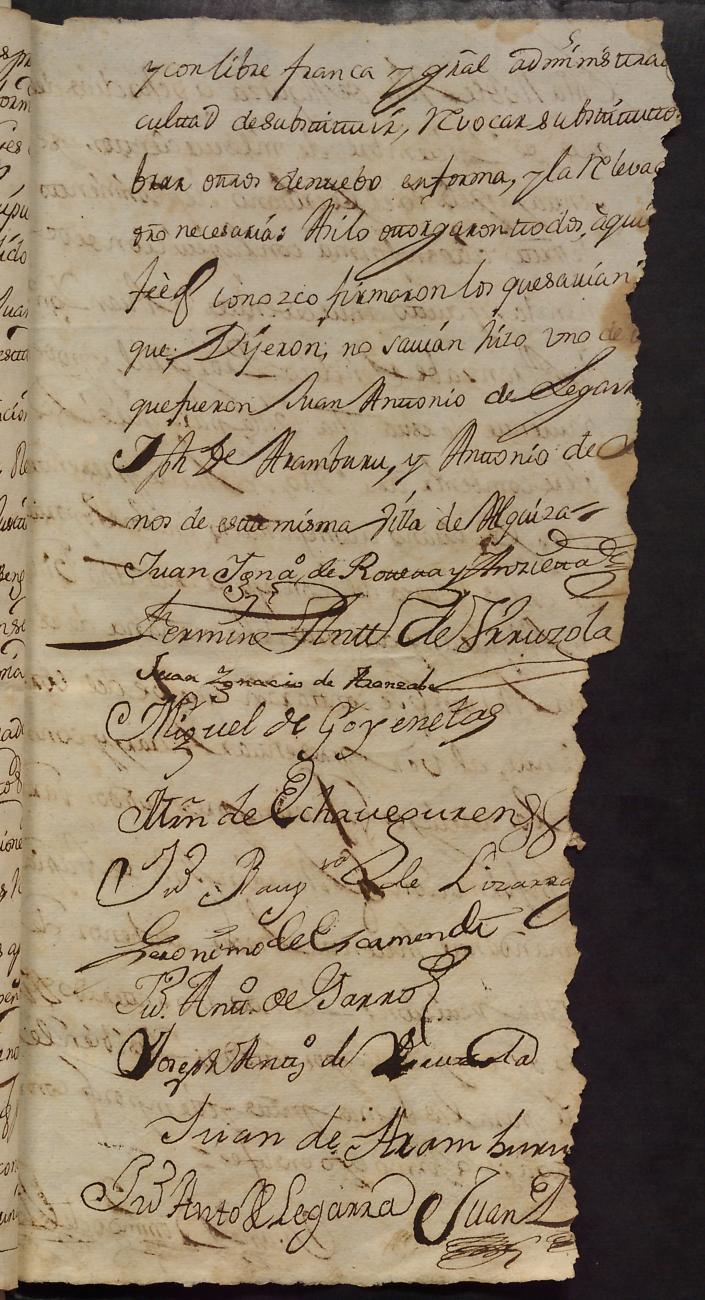 y con libre franca y gñal administrac
cultad de substituir, revocar substituto
brar otros de nuebo en forma, y la releva
dro necesaria: Asi lo otorgaron todos, aqui
feé conozco firmaron los que savian
que, Dijeron, no savian hizo uno de
que fueron Juan Antonio de Legarr
Jph de Aramburu, y Antonio de
nos de esta misma Villa de Alquiza
Juan Ignaº. de
Fermin Antt de Yrruzola
Juan Ygnacio de Aranzabe
Miguel de Goyenetas
Mrn de Echaveguren
Ju de Lizarra
Geronimo de Garmendi
Ju. Antº. de Garro
Joseph Antº de
Juan de Aramburu
Ju Anto de Legarra Juan